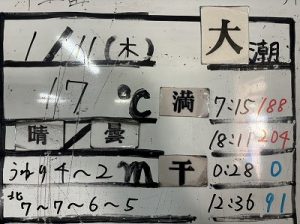 1/11(木) 大潮
17℃ 満 7:15 188
晴/曇 18:11 204
うねり4〜2m 干 0:28 0
北7〜7〜6〜5 12:36 91